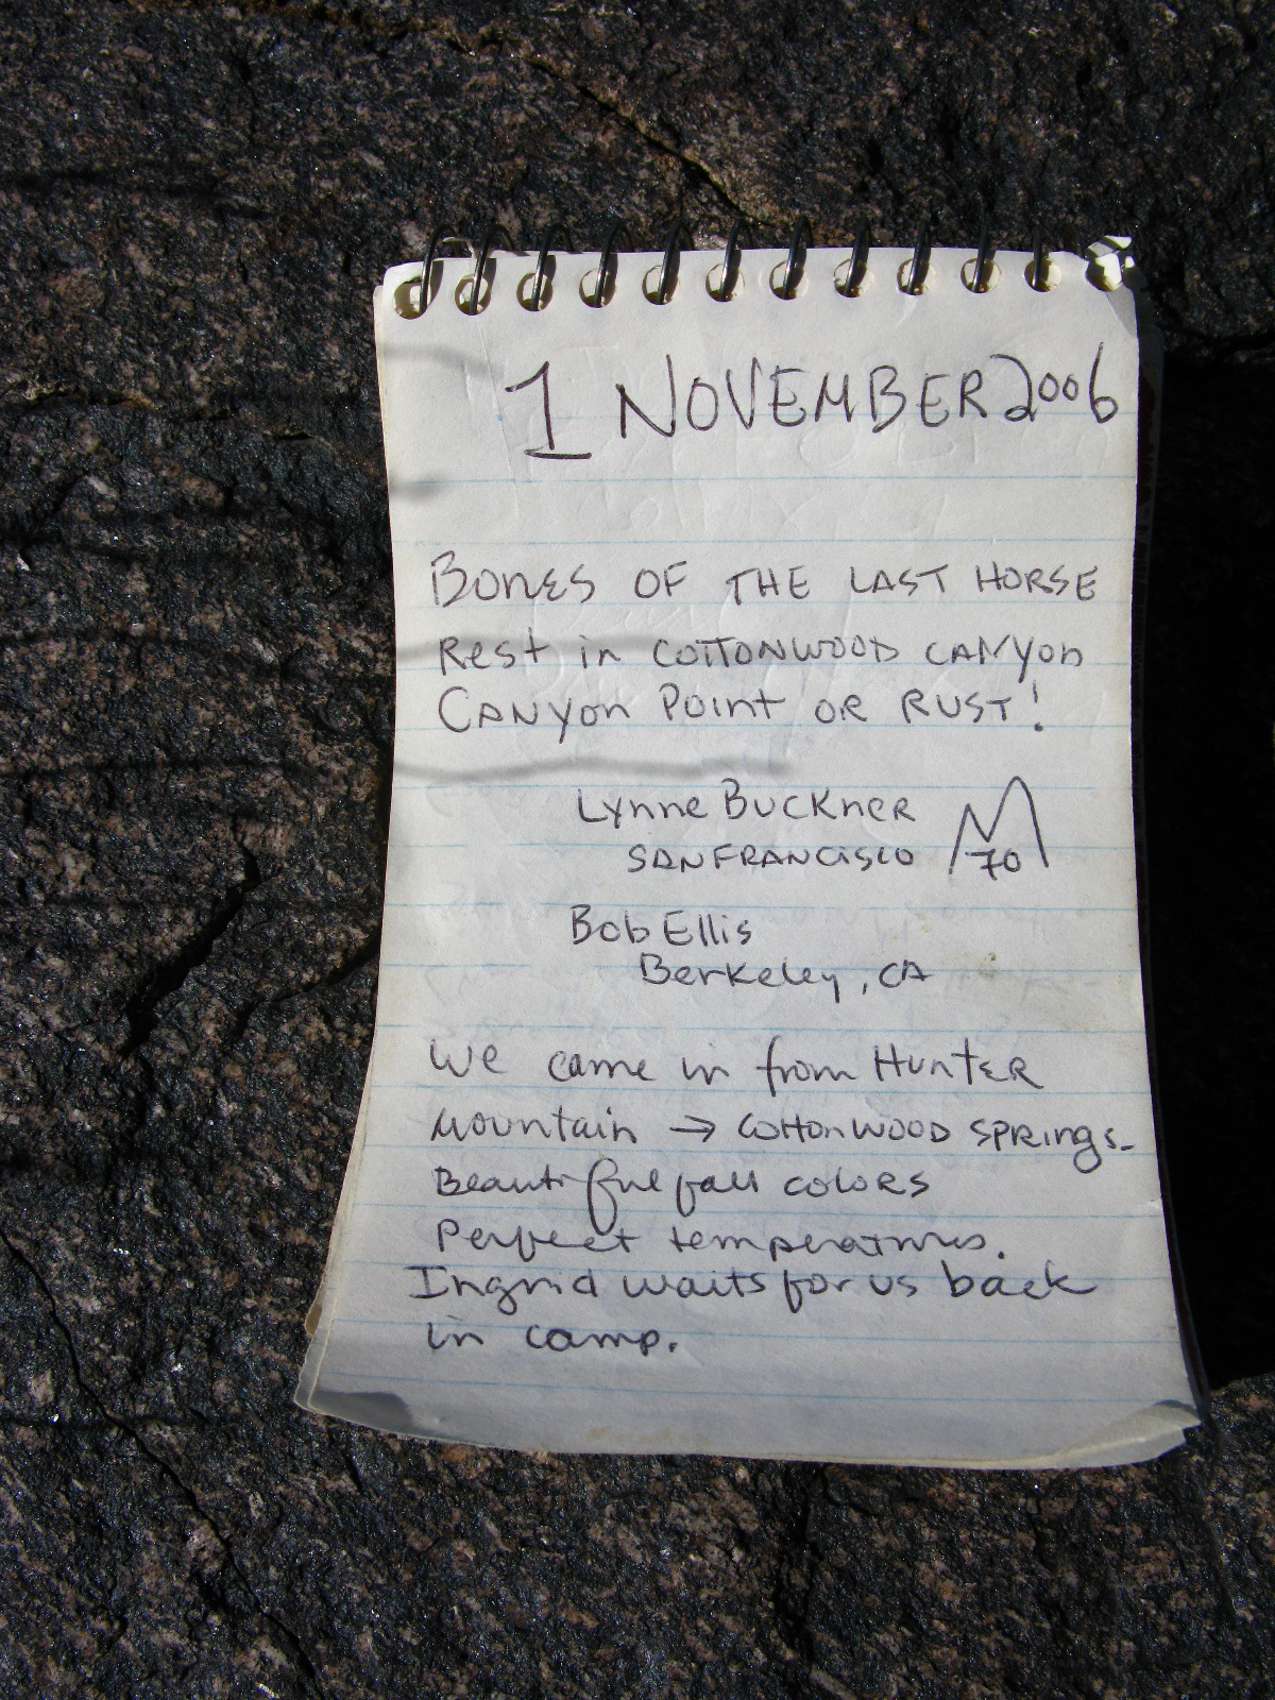 1 NOVEMBER 2006
BONES OF THE LAST HORSE
Rest in COTTONWOOD CANYON
CANYON POINT OR RUST!
Lynne BUCKNER
SAN FRANCISCO 70
Bob Ellis
Berkeley, CA
We came in from HUNTER
Mountain → COTTONWOOD SPRINGS-
Beautiful fall colors
Perfect temperatures.
Ingrid waits for us back
in camp.